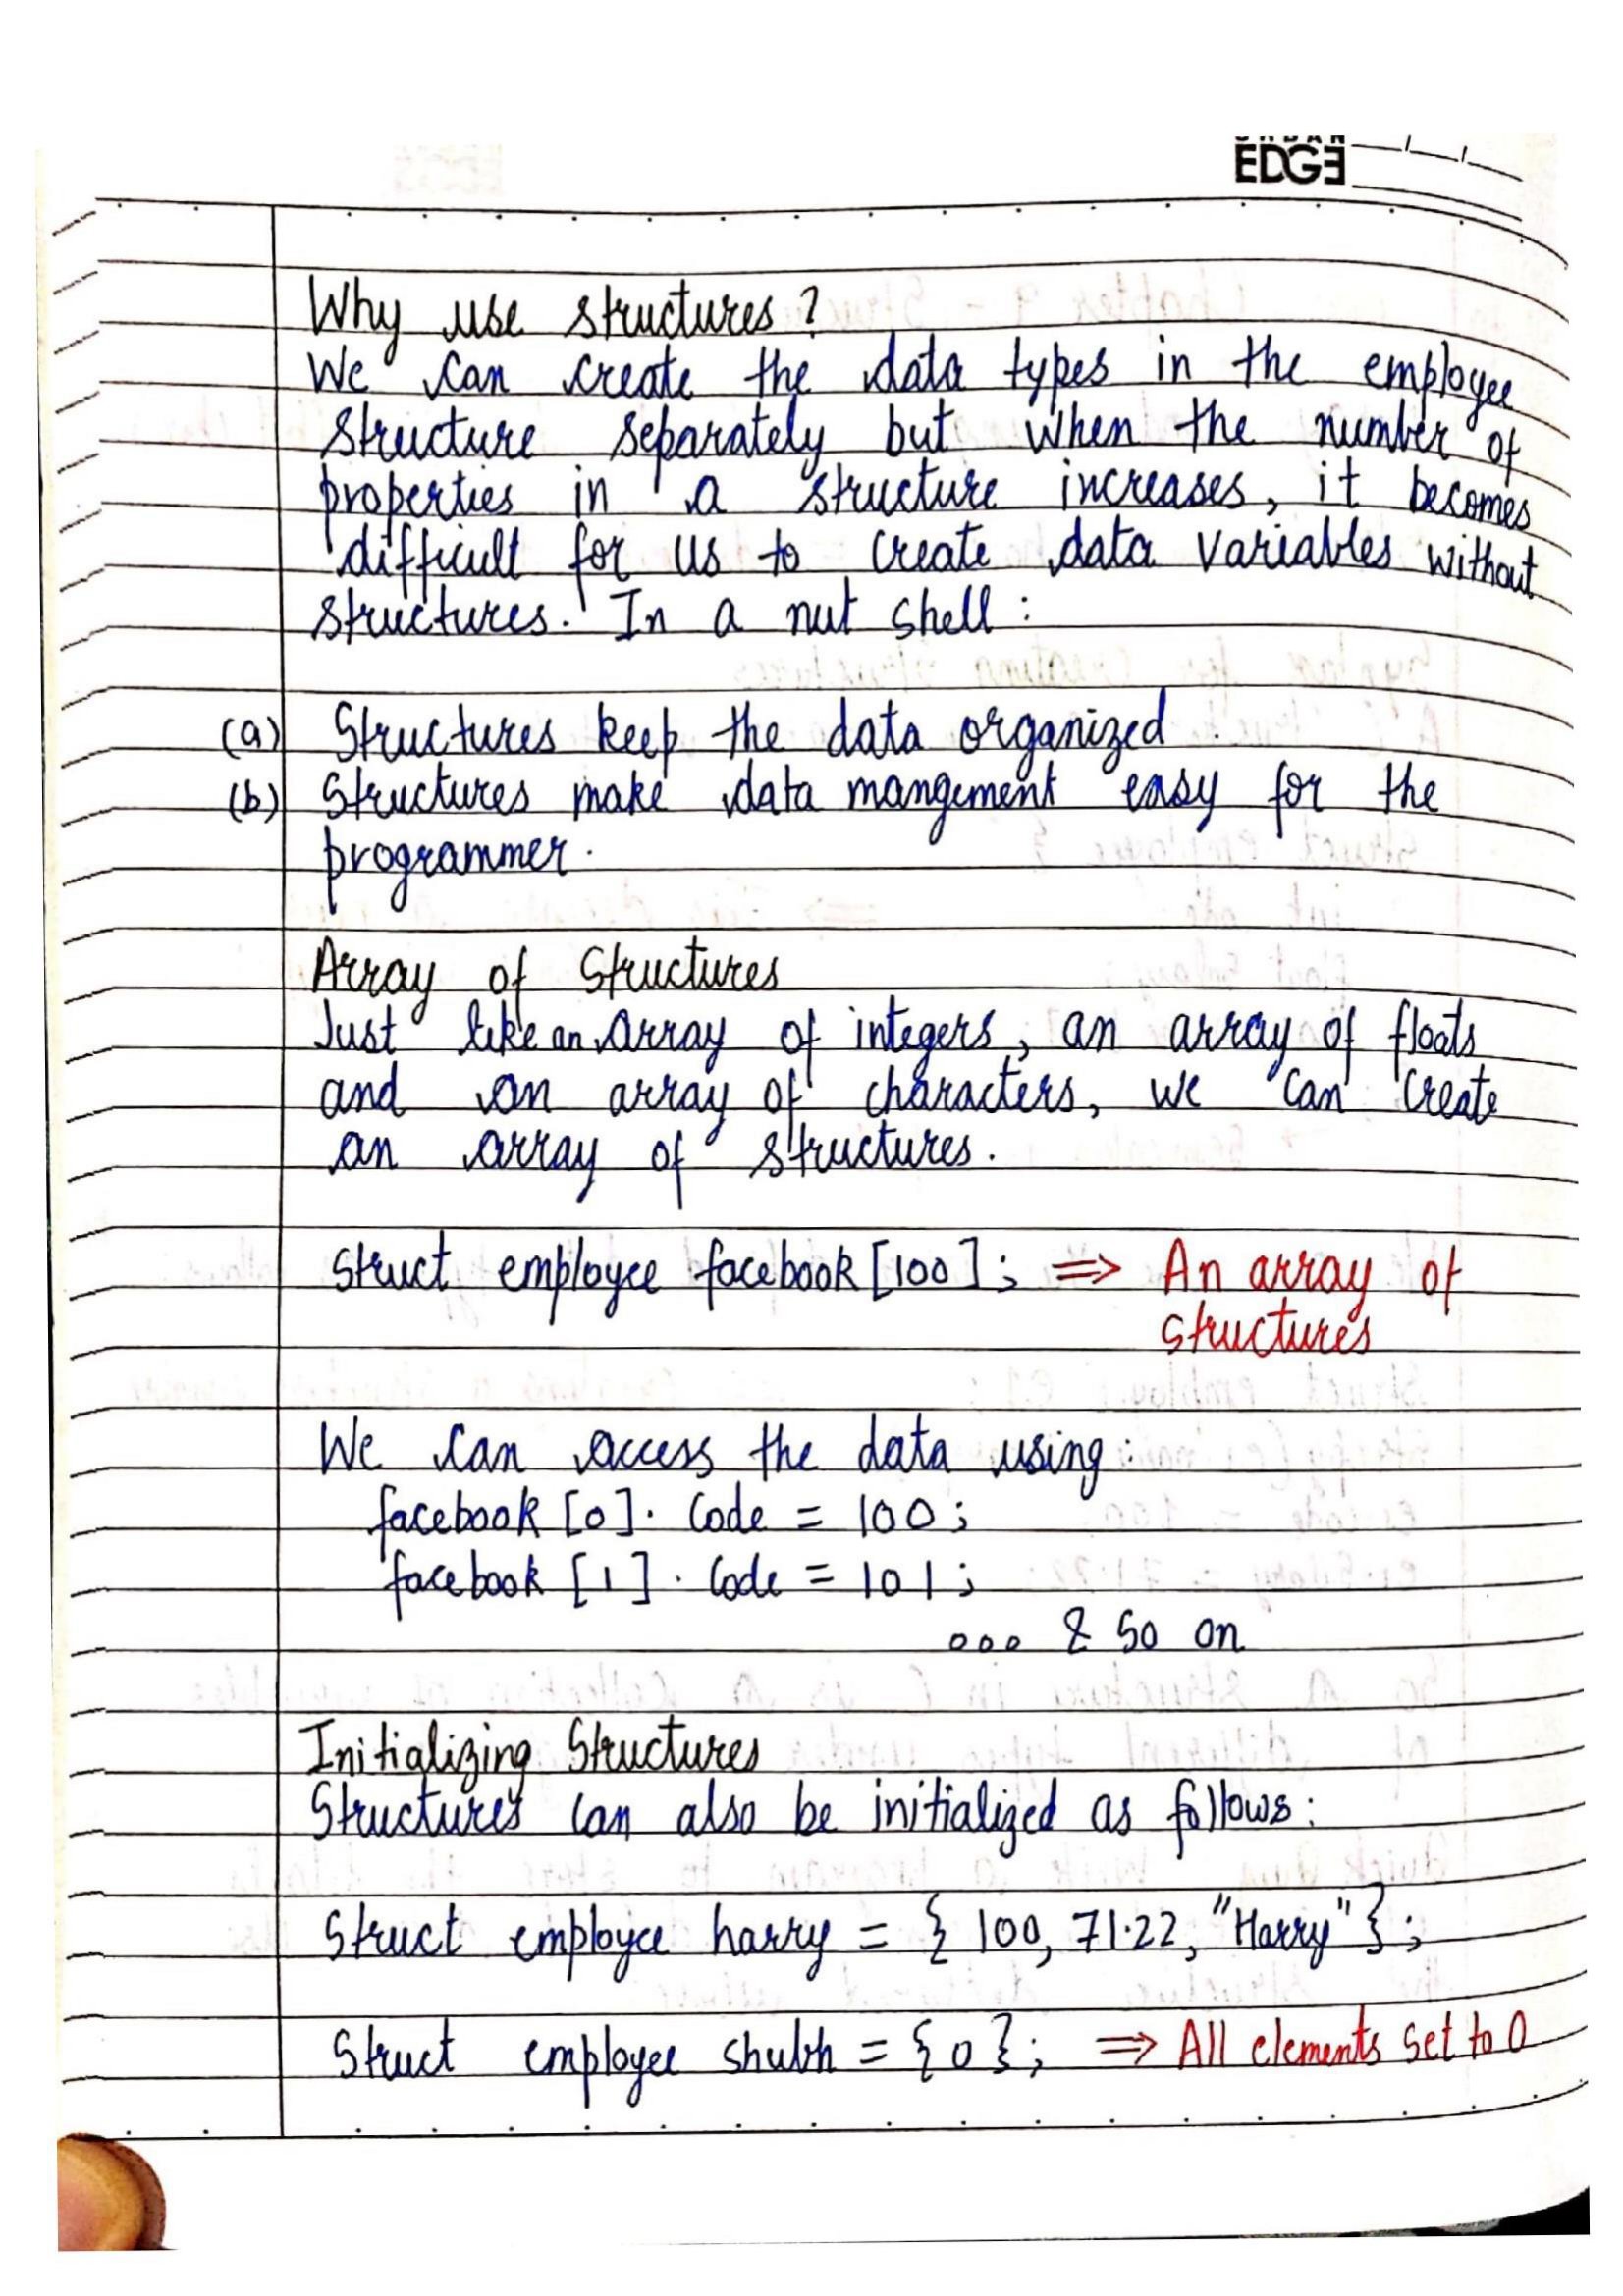 URBAN
EDGE
Why use structures?
We can create the data types in the employee
structure separately but when the number of
properties in a structure increases, it becomes
difficult for us to create data variables without
structures. In a nut shell:
(a) Structures keep the data organized
(b) Structures make data mangement easy for the
programmer.
Array of Structures
Just like an array of integers, an array of floats
and an array of characters, we can create
an array of structures.
Struct employee facebook [100]; ⇒ An array of
structures
We can access the data using:
facebook [0]. Code = 100;
facebook [1]. Code = 101;
... & so on
Initializing Structures
Structures can also be initialized as follows:
Struct employee harry = { 100, 71.22, "Harry" };
Struct employee shubh = {0}; ⇒ All elements set to 0